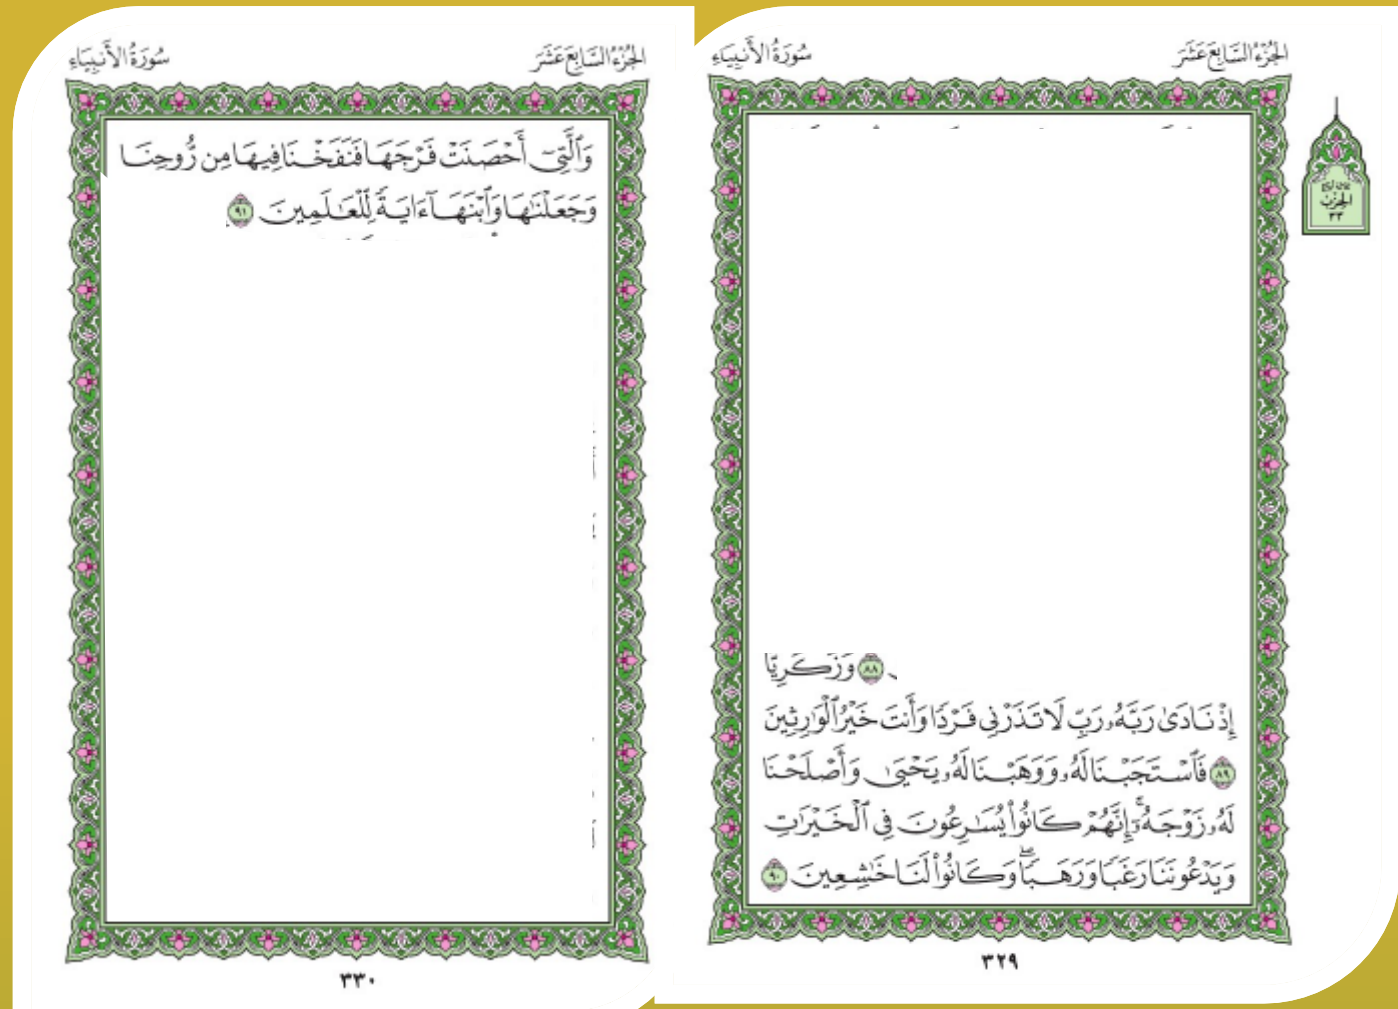 الجُزْءُ السَّابِعَ عَشَرَ
سُورَةُ الأَنبِيَاءِ
الحِزْب
٣٣
٨٨ وَزَكَرِيَّا
إِذْ نَادَىٰ رَبَّهُۥ رَبِّ لَا تَذَرْنِى فَرْدًا وَأَنتَ خَيْرُ ٱلْوَٰرِثِينَ
٨٩ فَٱسْتَجَبْنَا لَهُۥ وَوَهَبْنَا لَهُۥ يَحْيَىٰ وَأَصْلَحْنَا
لَهُۥ زَوْجَهُۥٓ ۚ إِنَّهُمْ كَانُوا۟ يُسَٰرِعُونَ فِى ٱلْخَيْرَٰتِ
وَيَدْعُونَنَا رَغَبًا وَرَهَبًا ۖ وَكَانُوا۟ لَنَا خَٰشِعِينَ ٩٠
٣٢٩
الجُزْءُ السَّابِعَ عَشَرَ
سُورَةُ الأَنبِيَاءِ
وَٱلَّتِىٓ أَحْصَنَتْ فَرْجَهَا فَنَفَخْنَا فِيهَا مِن رُّوحِنَا
وَجَعَلْنَٰهَا وَٱبْنَهَآ ءَايَةً لِّلْعَٰلَمِينَ ٩١
٣٣٠